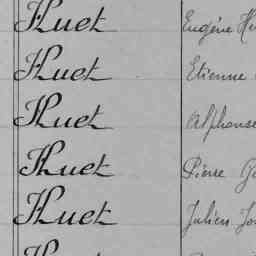 Huet Eugène
Huet Etienne
Huet Alphonse
Huet Pierre
Huet Julien